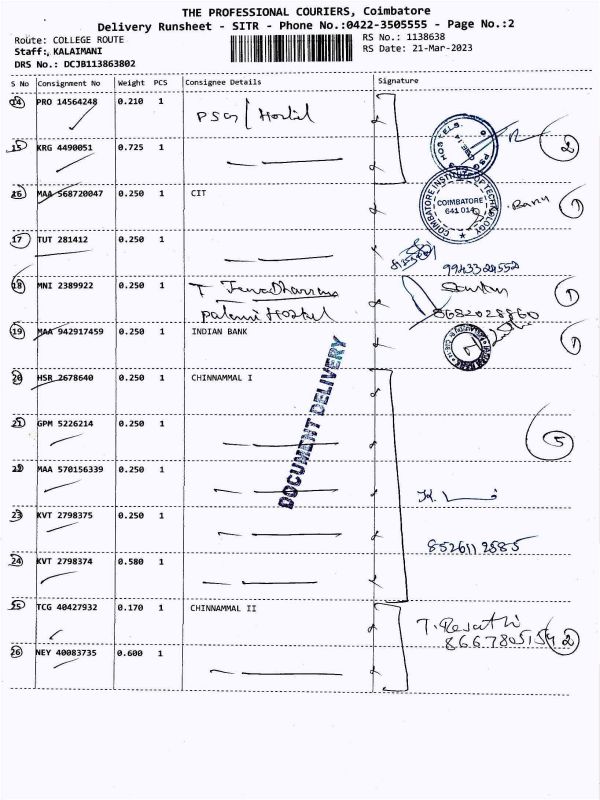 THE PROFESSIONAL COURIERS, Coimbatore
Delivery Runsheet - SITR - Phone No.:0422-3505555 - Page No.:2
Route: COLLEGE ROUTE
RS No.: 1138638
Staff:, KALAIMANI
RS Date: 21-Mar-2023
DRS No.: DCJB113863802
S No Consignment No Weight PCS Consignee Details Signature
14 PRO 14564248 0.210 1 PSG Hostel
15 KRG 4490051 0.725 1 2
16 MAA 568720047 0.250 1 CIT 1
COIMBATORE INSTITUTE OF TECHNOLOGY
COIMBATORE
641 014
17 TUT 281412 0.250 1
18 MNI 2389922 0.250 1 T 1
Hostel 8682028860
19 MAA 942917459 0.250 1 INDIAN BANK 1
20 HSR 2678640 0.250 1 CHINNAMMAL I
DOCUMENT DELIVERY
21 GPM 5226214 0.250 1 5
22 MAA 570156339 0.250 1
23 KVT 2798375 0.250 1
8526112885
24 KVT 2798374 0.580 1
25 TCG 40427932 0.170 1 CHINNAMMAL II
8667805154 2
26 NEY 40083735 0.600 1